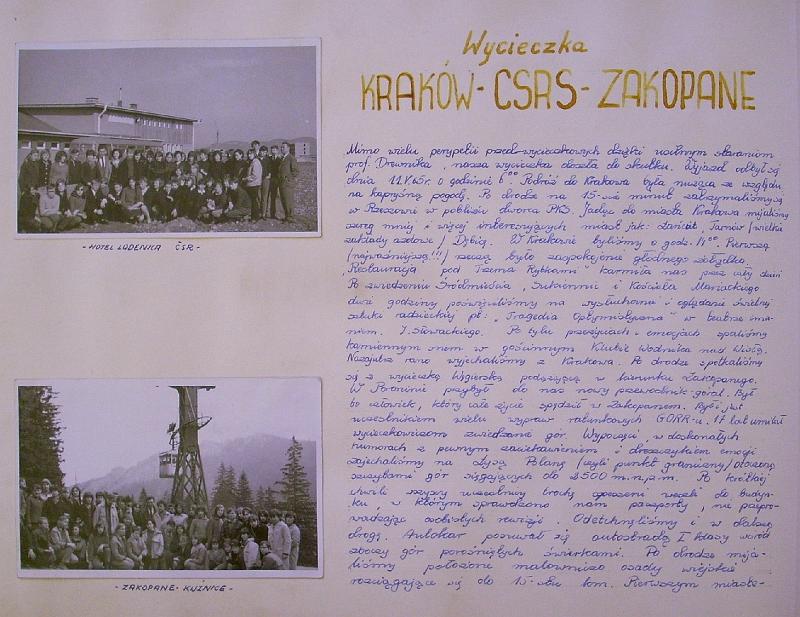 Wycieczka
KRAKÓW - CSRS - ZAKOPANE
Mimo wielu perypetii przed-wycieczkowych dzięki usilnym staraniom
prof. Drewnika, nasza wycieczka doszła do skutku. Wyjazd odbył się
dnia 11.V.65r. o godzinie 6⁰⁰. Podróż do Krakowa była nużąca ze względu
na kapryśną pogodę. Po drodze na 15-cie minut zatrzymaliśmy
w Rzeszowie w pobliżu dworca PKS. Jadąc do miasta Krakowa mijaliśmy
szereg mniej i więcej interesujących miast jak: Łańcut, Tarnów (wielkie
zakłady azotowe) Dębicę. W Krakowie byliśmy o godz. 11⁰⁰. Pierwszą
(najważniejszą!!!) rzeczą było zaspokojenie głodnego żołądka.
Restauracja "pod Trzema Rybkami" karmiła nas przez cały dzień
Po zwiedzeniu Śródmieścia, Sukiennic i Kościoła Mariackiego
dwie godziny poświęciliśmy na wysłuchanie i oglądanie świetnej
sztuki radzieckiej pt: "Tragedia Optymistyczna" w teatrze imie-
niem J. Słowackiego. Po tylu przeżyciach i emocjach spaliśmy
kamiennym snem w gościnnym Klubie Wodnika nad Wisłą.
Nazajutrz rano wyjechaliśmy z Krakowa. Po drodze spotkaliśmy
się z wycieczką Węgierską podążającą w kierunku Zakopanego.
W Poroninie przybył do nas nowy przewodnik-góral. Był
to człowiek, który całe życie spędził w Zakopanem. Był jest
uczestnikiem wielu wypraw ratunkowych GOPR-u. 17 lat umilał
wycieczkowiczom zwiedzanie gór. Wypoczęci, w doskonałych
humorach z pewnym zaciekawieniem i dreszczykiem emocji
zajechaliśmy na Łysą Polanę (czyli punkt graniczny) otoczoną
szczytami gór sięgających do 2500 m.n.p.m. Po krótkiej
chwili wszyscy weseliśmy trochę weszli do budyn-
ku, w którym sprawdzono nam paszporty, nie przepro-
wadzając osobistych rewizji. Odetchnęliśmy i w dalszą
drogę. Autokar posuwał się autostradą I klasy wśród
zboczy gór porośniętych świerkami. Po drodze mija-
liśmy położone malowniczo osady wiejskie
rozciągające się do 15-stu km. Pierwszym miaste-
- HOTEL LODENICA ČSR -
- ZAKOPANE - KUŹNICE -